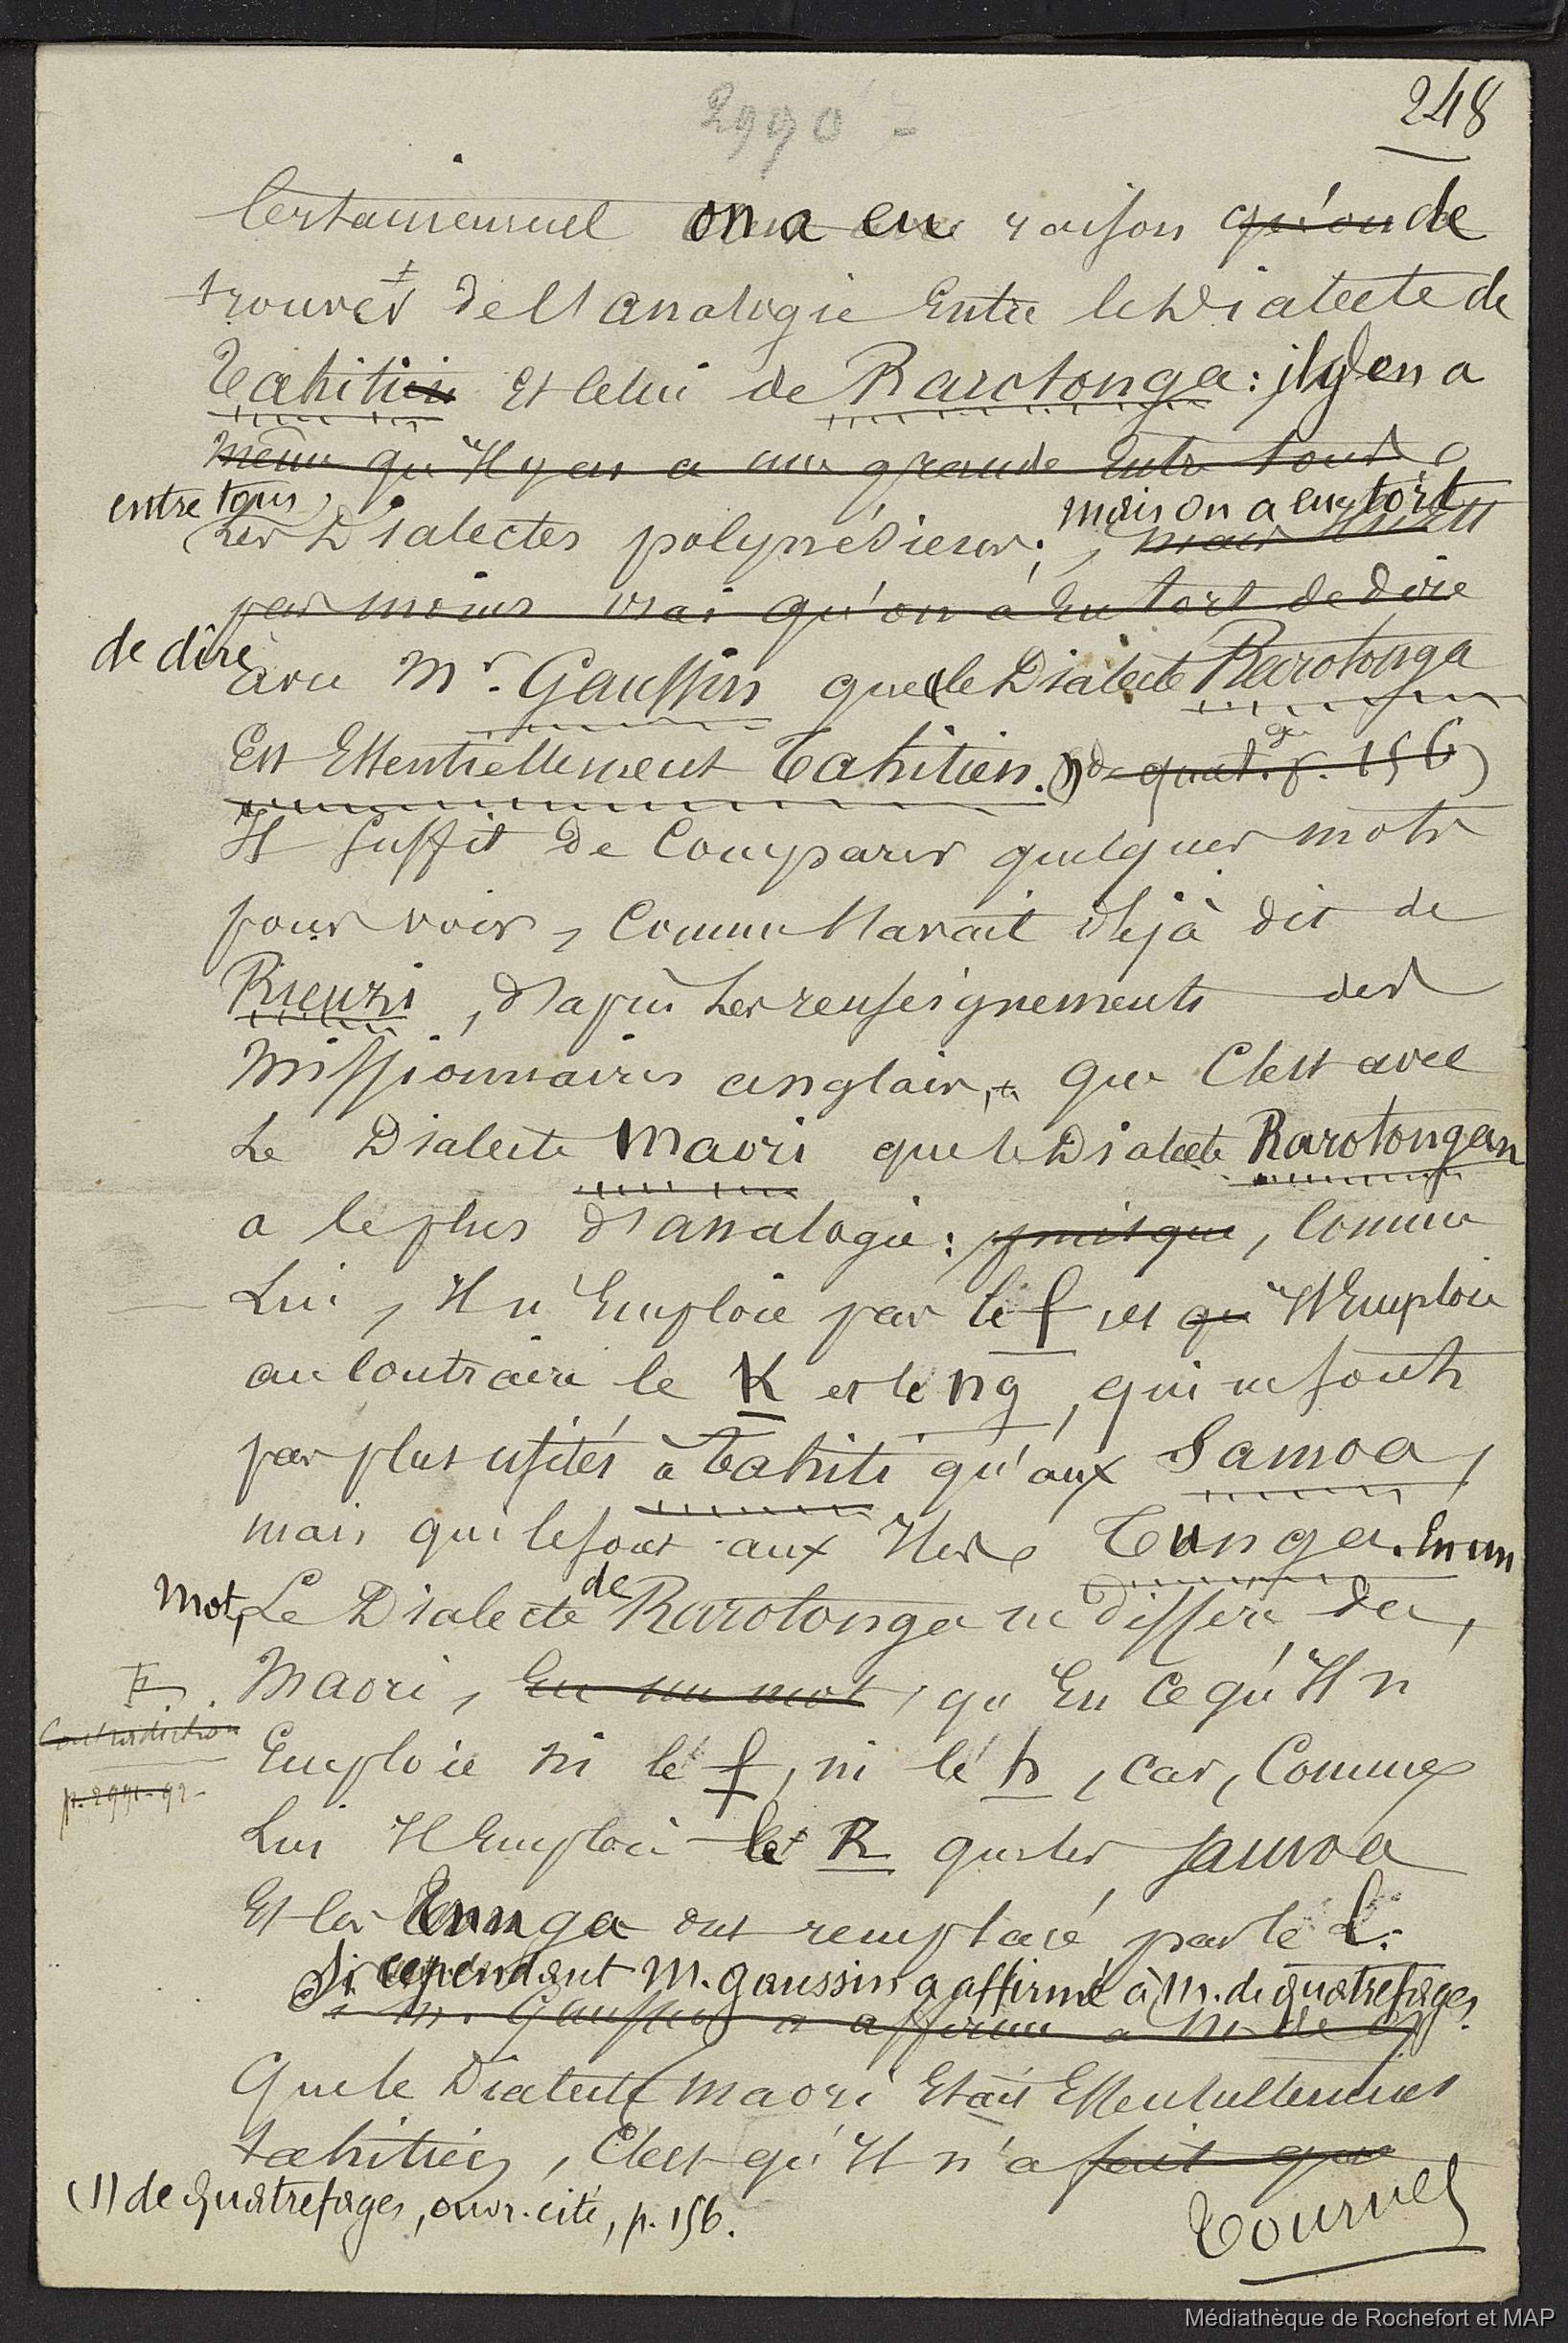 2990
248
Certainement on a eu raison qu'on de
trouver de l'analogie entre le Dialecte de
Tahitien et celui de Rarotonga : il y en a
même qu'il y en a une grande entre tous
entre tous, mais on a eu tort
les Dialectes polynésiens ; mais il n'est
pas moins vrai qu'on a eu tort de dire
de dire
avec Mr. Gaussin que le Dialecte Rarotonga
Est Essentiellement Tahitien. (1) de quat. p. 156)
Il suffit de comparer quelques mots
pour voir, comme l'avait déjà dit de
Rienzi, d'après les renseignements des
Missionnaires anglais, que c'est avec
le Dialecte Maori que le Dialecte Rarotongan
a le plus d'analogie : puisque, comme
Lui, Il n'Emploie pas le f et qu'Il Emploie
au contraire le K et le ng, qui ne sont
pas plus usités à Tahiti qu'aux Samoa,
mais qui le sont aux Iles Tunga. En un
mot, Le Dialecte de Rarotonga ne diffère du
Maori, en un mot, qu'En ce qu'Il n'
Contradiction
Emploie ni le f, ni le h, car, Comme
p. 2991-92-
Lui Il Emploie le R que les Samoa
Et les Tunga ont remplacé par le L.
Si cependant M. Gaussin a affirmé à M. de Quatrefages
Si M. Gaussin a affirmé à M. de Q
Que le Dialecte Maori Etait Essentiellement
tahitien, C'est qu'Il n'a fait que
(1) de Quatrefages, ouvr. cité, p. 156.
Tournez
Médiathèque de Rochefort et MAP